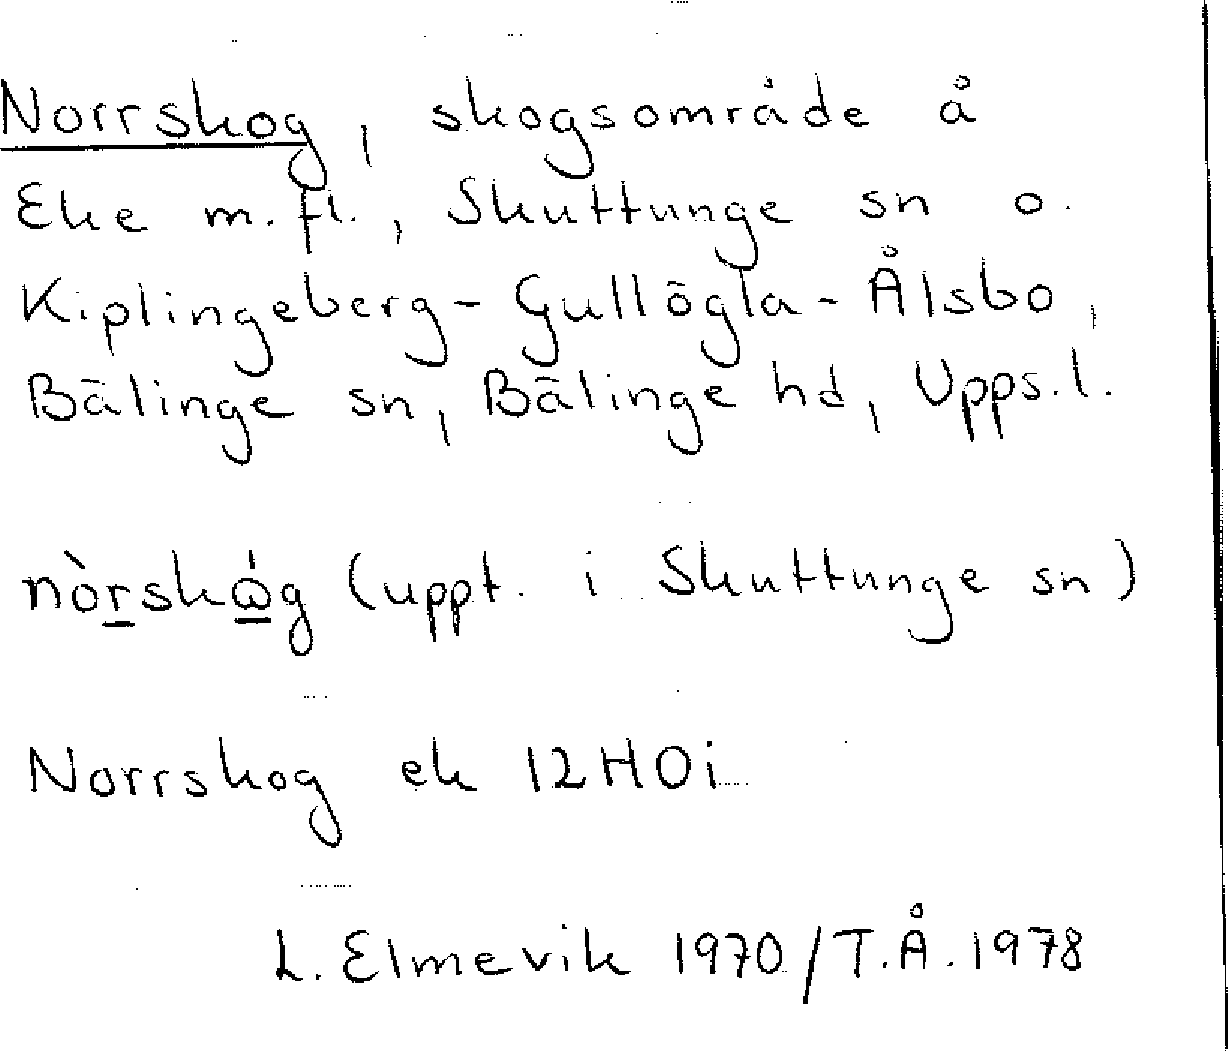 Norrskog, skogsområde å
Eke m.fl., Skuttunge sn o.
Kiplingeberg-Gullögla-Ålsbo,
Bälinge sn, Bälinge hd, Upps.l.
(uppt. i Skuttunge sn)
Norrskog ek 12H0i
L. Elmevik 1970/T.Å.1978